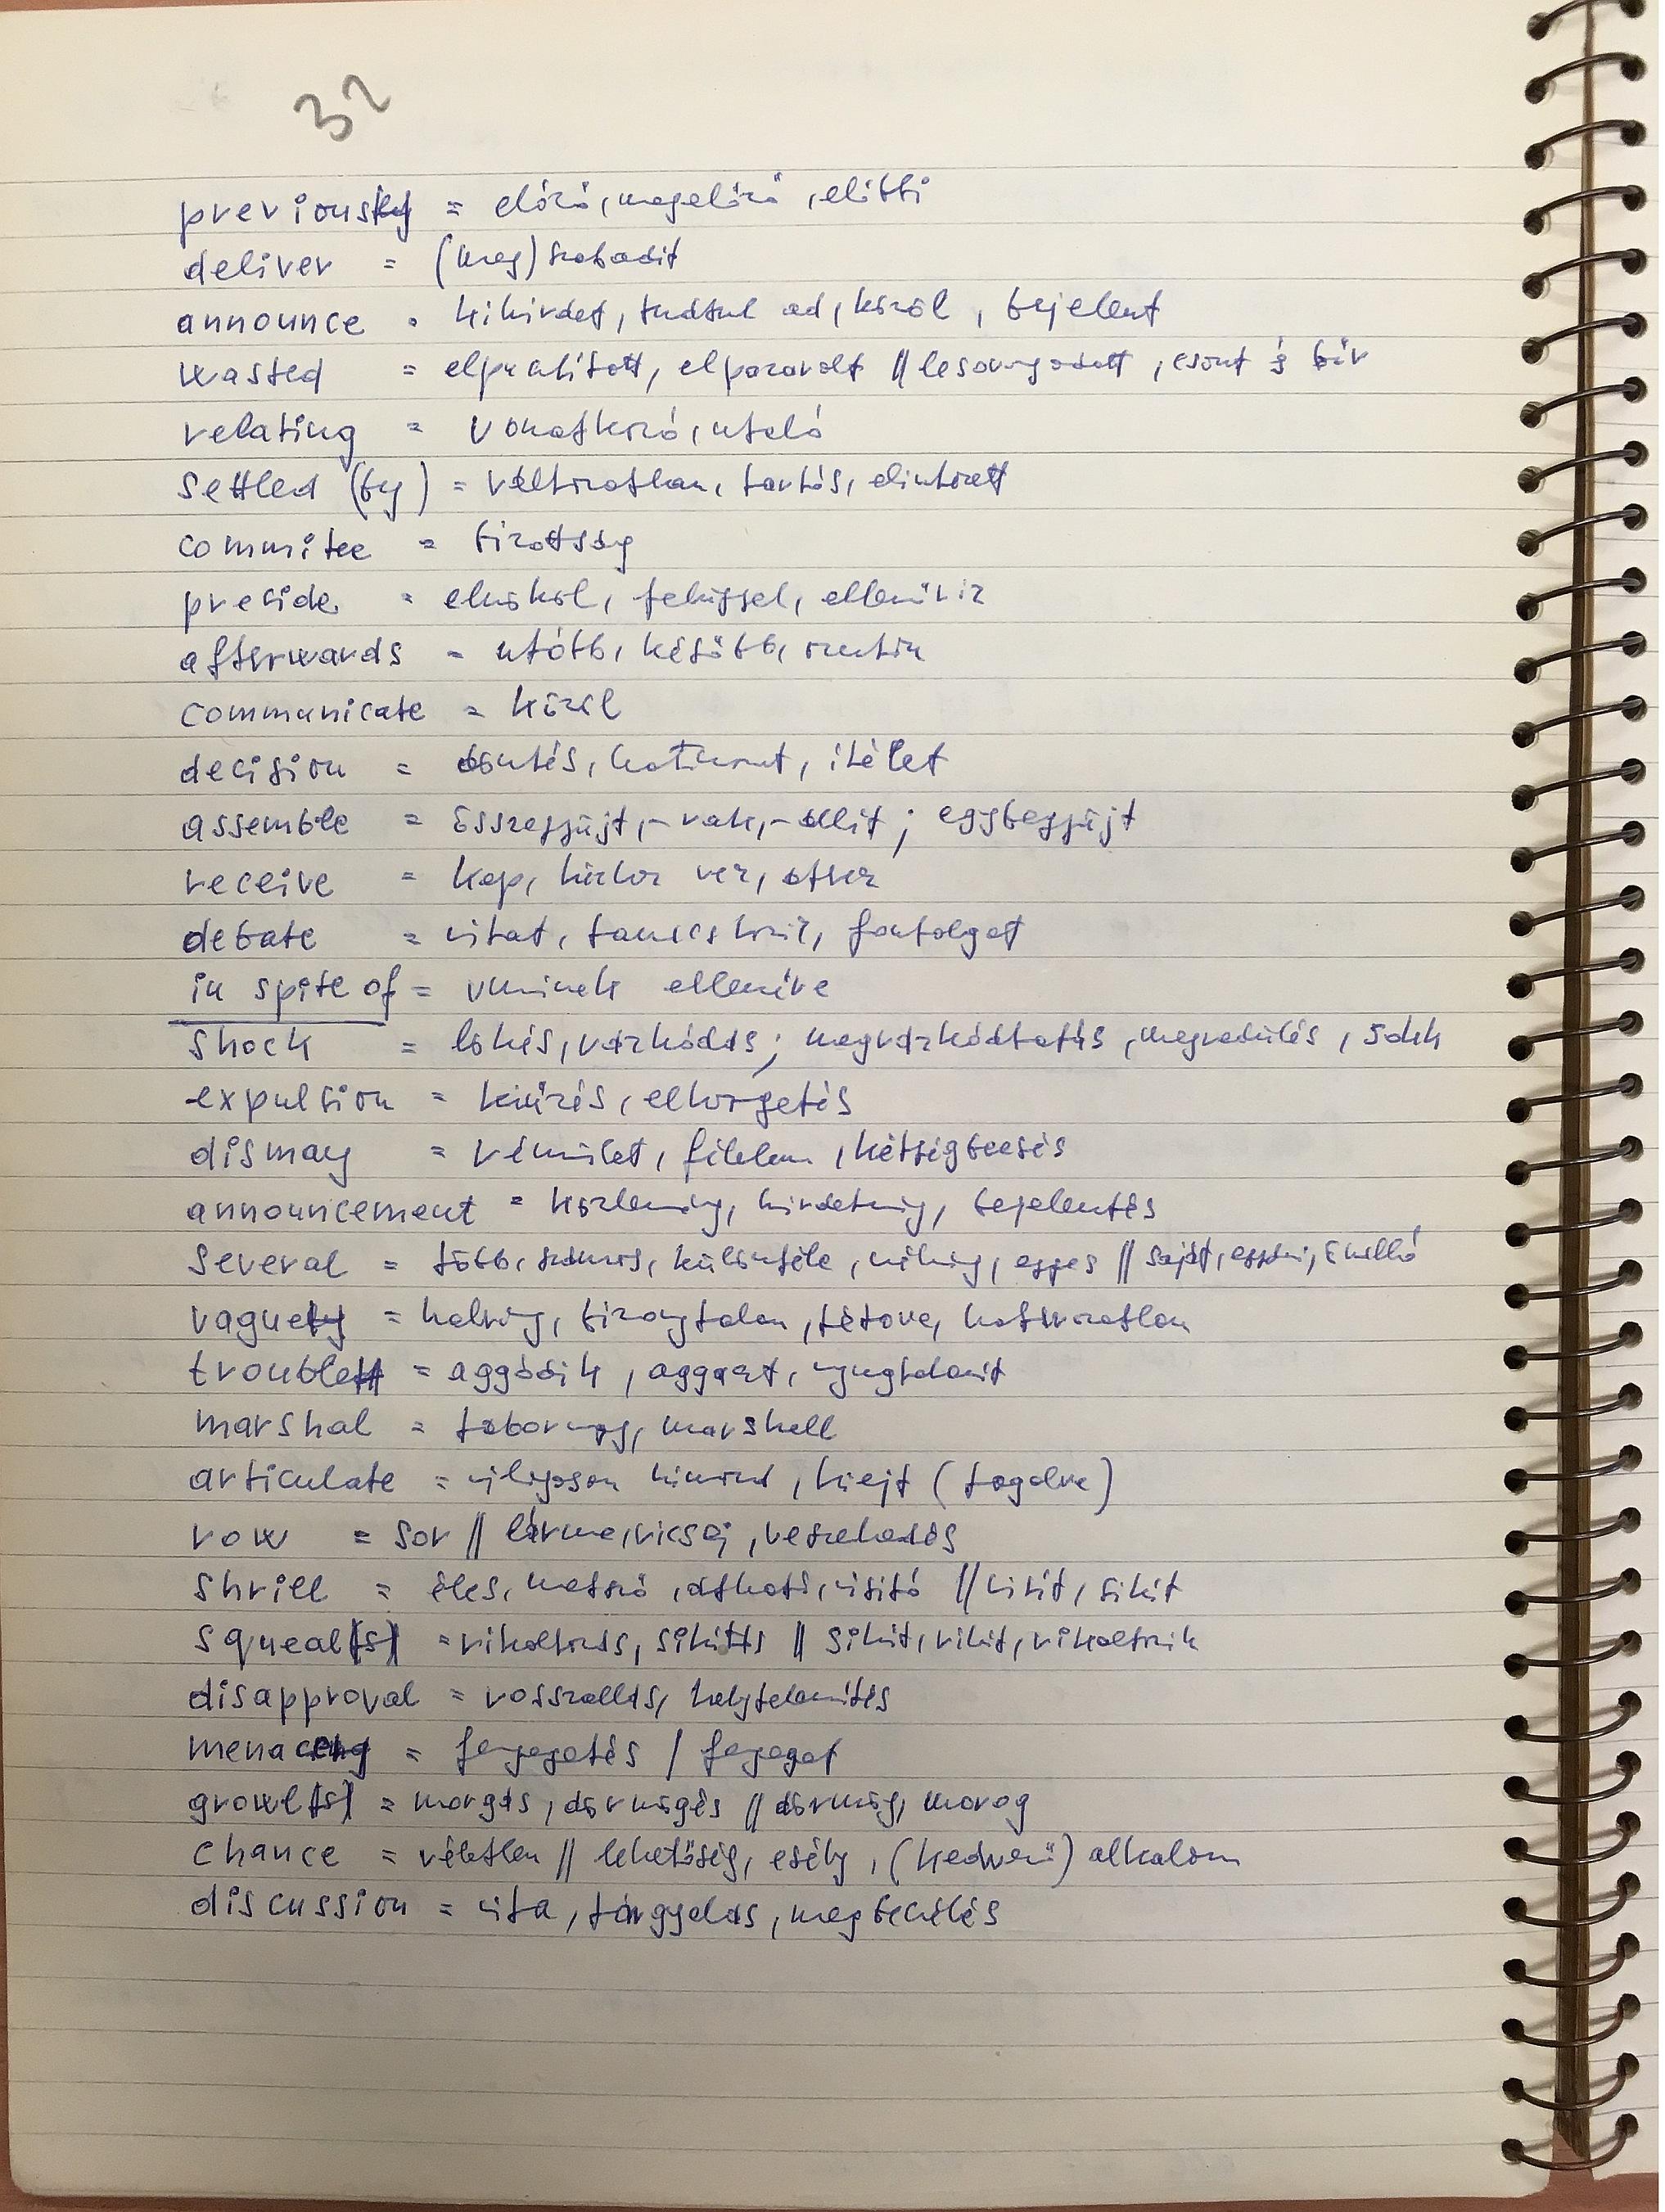 32
previously = előző, megelőző, előtti
deliver = (meg)szabadít
announce = kihirdet, tudtul ad, közöl, bejelent
wasted = elpusztított, elpazarolt // lesoványodott, csont és bőr
relating = vonatkozó, utaló
settled (by) = változatlan, tartós, elintézett
commitee = bizottság
preside = elnököl, felügyel, ellenőriz
afterwards = utóbb, később, azután
communicate = közöl
decision = döntés, határozat, ítélet
assemble = összegyűjt, - rak, - állít ; egybegyűjt
receive = kap, kézhez vesz, átvesz
debate = vitat, tanácskozik, fontolgat
in spite of = vminek ellenére
shock = lökés, rázkódás; megrázkódtatás, megrendülés, sokk
expulsion = kiűzés, elkergetés
dismay = rémület, félelem, kétségbeesés
announcement = közlemény, hirdetmény, bejelentés
several = több, számos, különféle, néhány, egyes // saját, egyéni, önálló
vaguely = halvány, bizonytalan, tétova, határozatlan
troublett = aggódik, aggaszt, nyugtalanít
marshal = tábornagy, marshall
articulate = világosan kimond, kiejt (tagolva)
row = sor // lárma, ricsaj, veszekedés
shrill = éles, metsző, átható, visító // visít, sikít
squeal(s) = rikoltozás, sikítás // sikít, visít, rikoltozik
disapproval = rosszallás, helytelenítés
menacing = fenyegetés / fenyeget
growl(s) = morgás, dörmögés // dörmög, morog
chance = véletlen // lehetőség, esély, (kedvező) alkalom
discussion = vita, tárgyalás, megbeszélés